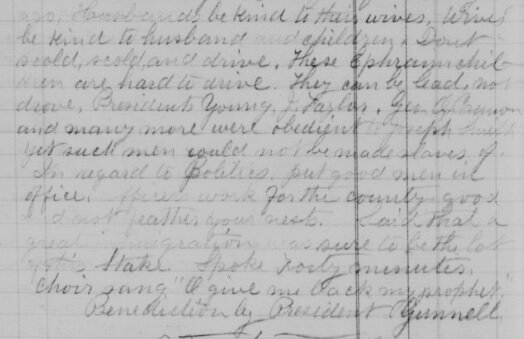 ago, Husbands be kind to their wives. Wives
be kind to husband and children. Dont
scold, scold, and drive. These Ephraim chil
dren are hard to drive. They can be lead, not
drove, President Young, J. Taylor, Geo. Q Cannon
and many more were obedient to Joseph Smith
yet such men could not be made slaves of.
In regard to Politics. put good men in
office. officers work for the county good
d not feather your nests. Said that a
great immigration was sure to be the lot
of this Stake. Spoke Forty minutes.
Choir sang "O give me back my prophet."
Benediction by President Gunnell